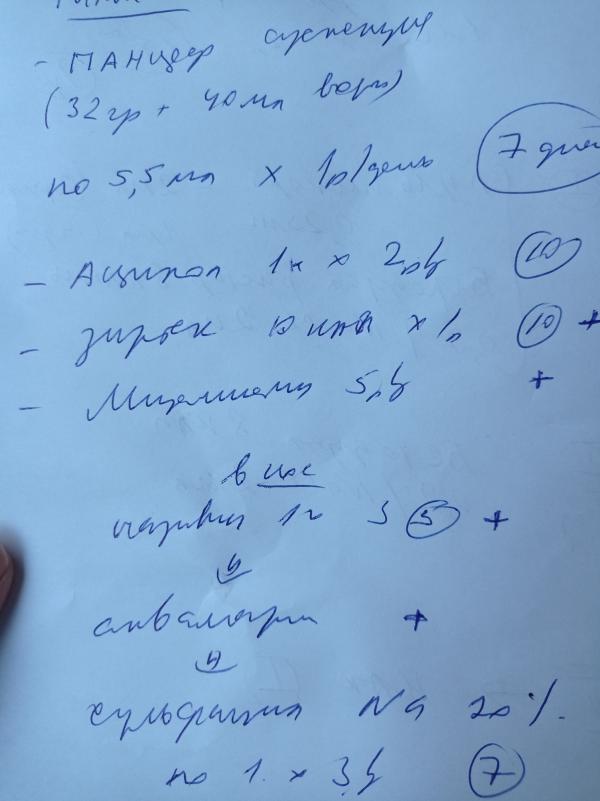 - Панцеф суспензия
(32гр + 40мл воды)
по 5,5мл х 1р/день 7 дней
- Аципол 1к х 2р/д 10
- зиртек 10 кап х 1р 10 +
- Мирамистин 5р/д +
в нос
називин 1к 3 5 +
↓
аквалор +
↓
сульфацил Na 20%.
по 1. х 3р/д 7